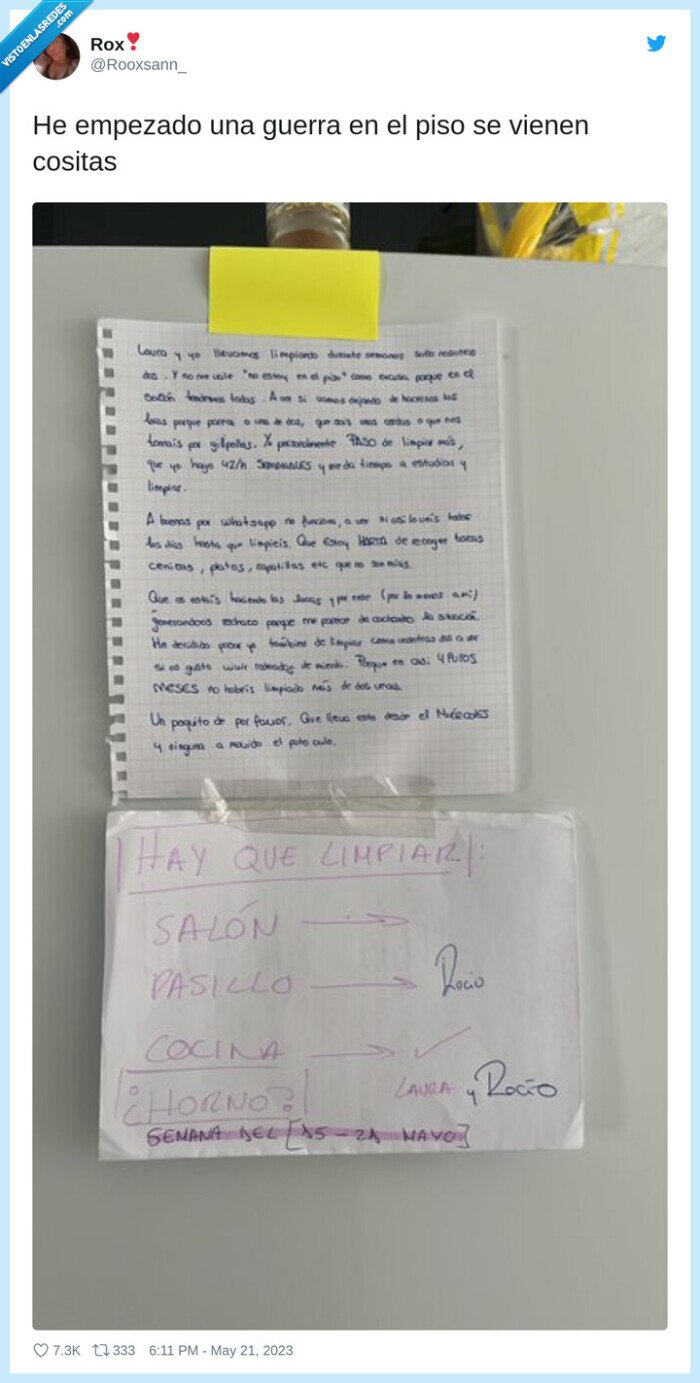 VISTOENLASREDES
.com
Rox
@Rooxsann_
He empezado una guerra en el piso se vienen
cositas
Laura y yo llevamos limpiando durante semanas solo nosotras
dos. Y no me vale "no estoy en el piso" como excusa porque en el
salón tendemos todas. A ver si vamos dejando de hacernos las
locas porque parece o una de dos, que sois unas cerdas o que nos
tomais por gilipollas. Yo personalmente PASO de limpiar más,
que yo hago 42/h SEMANALES y me da tiempo a estudiar y
limpiar.
A buenas por whatsapp no funciona, a ver si asi lo veis todos
los dias hasta que limpieis. Que estoy HARTA de recoger tazas
cenizas, platos, zapatillas etc que no son mias.
Que os estais haciendo las locas y por ende (por lo menos a mi)
generandoos rechazo porque me parece de cachondeo la situación.
He decidido pasar yo también de limpiar como vosotras dos a ver
si os gusta vivir rodeadas de mierda. Porque en casi 4 PUTOS
MESES no habreis limpiado más de dos veces.
Un poquito de por favor. Que lleva esto desde el MIÉRCOLES
y ninguna a movido el puto culo.
HAY QUE LIMPIAR:
SALÓN
PASILLO Rocio
COCINA
LAURA y Rocío
¿HORNO?
SEMANA DEL [15-21 MAYO]
7.3K 333 6:11 PM - May 21, 2023